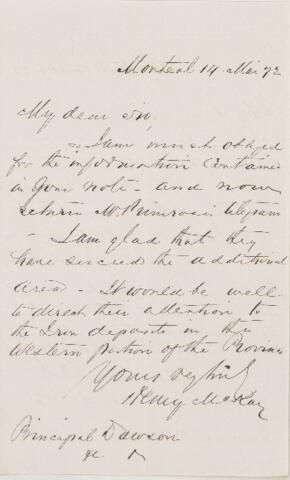 Montreal 14 Mar 72
My dear Sir,
I am much obliged
for the information contained
in your note - and now
return Mr Primrose's telegram
- I am glad that they
have secured the additional
area - It would be well
to direct their attention to
the Iron deposits in the
Western portion of the Province
Yours very truly
Henry McKay
Principal Dawson